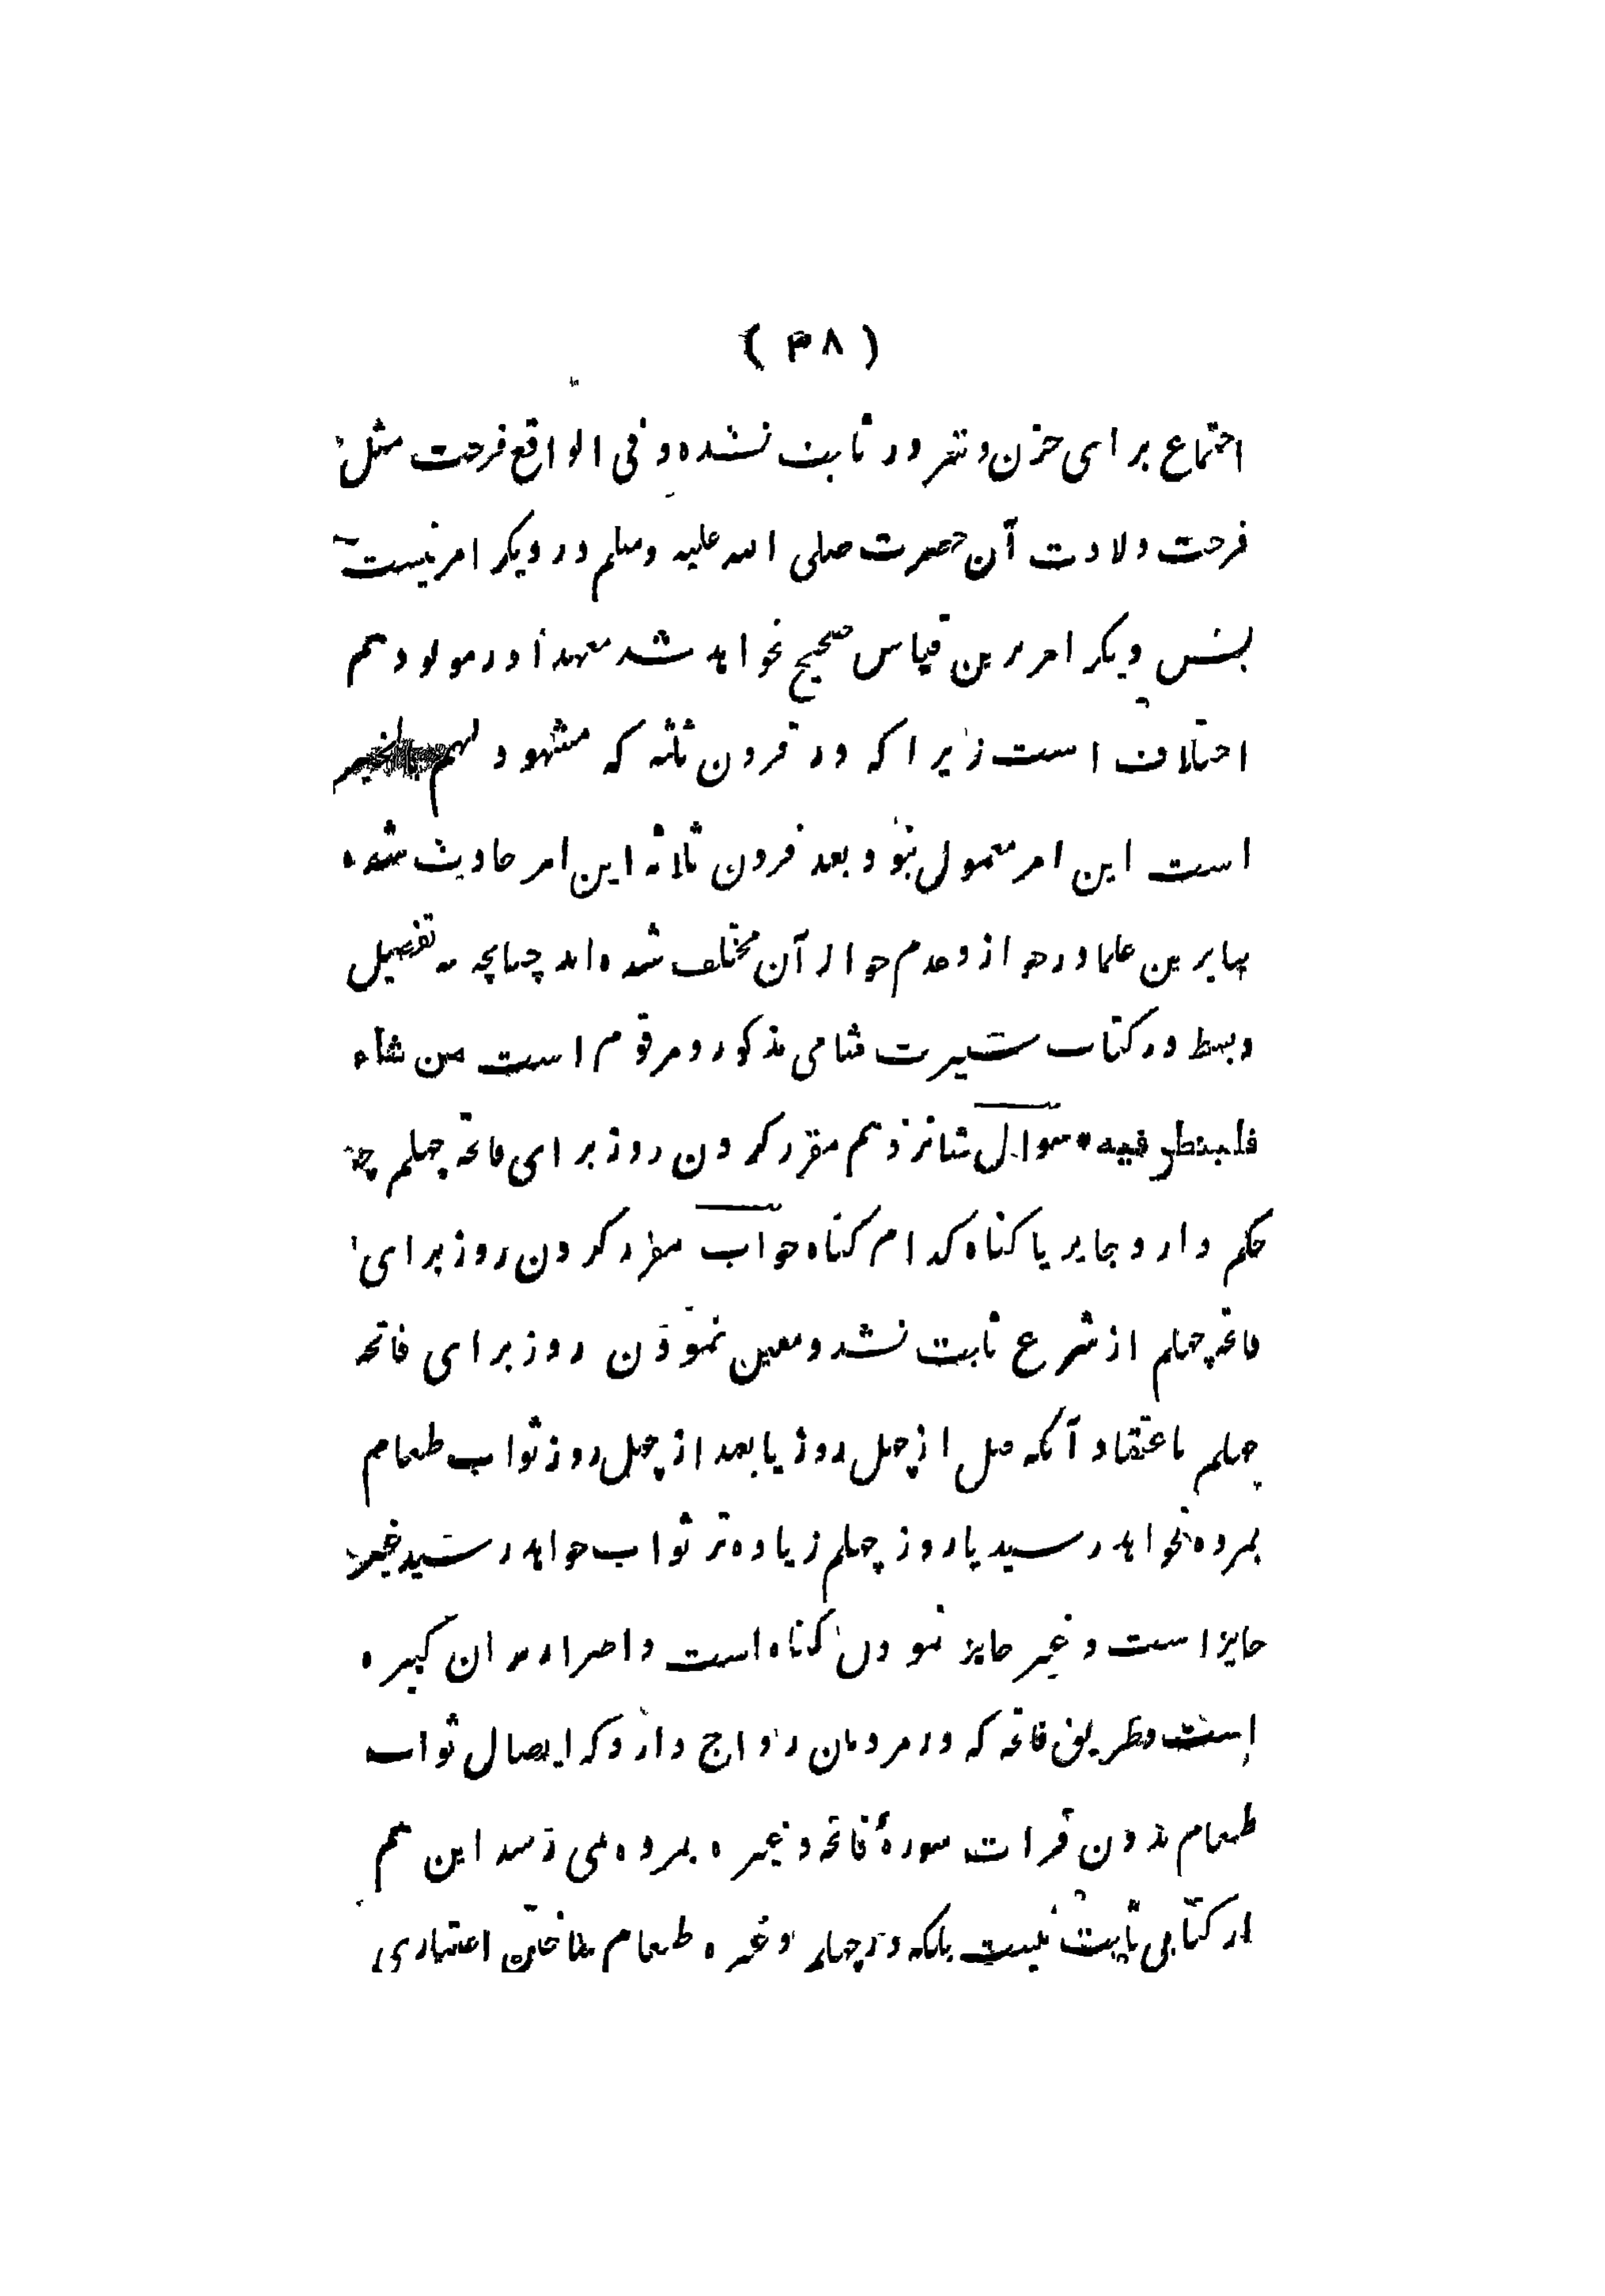 ( ۳۸ )
اجتماع برای حزن و شرور ثابت نشده و فی الواقع فرحت مثل
فرحت ولادت آن حضرت صلی الله علیه وسلم در دیگر امر نیست
پس دیگر امر برین قیاس صحیح نخواهد شد معهذا در مولود هم
اختلاف است زیرا که در قرون ثلثه که مشهود لهم بالخیر
است این امر معمول نبود بعد قرون ثلاثه این امر حادث شده
بنابرین علما در جواز و عدم جواز آن مختلف شده اند چنانچه به تفصیل
وبسط در کتاب سیرت شامی مذکور و مرقوم است من شاء
فلینظر فیه * سوال شانزدهم مقرر کردن روز برای فاتحه چهلم چه
حکم دارد جایز یا گناه کدام گناه جواب مقرر کردن روز برای
فاتحه چهلم از شرع ثابت نشد و معین نمودن روز برای فاتحه
چهلم باعتقاد آنکه قبل از چهل روز یا بعد از چهل روز ثواب طعام
بمرده نخواهد رسید یا روز چهلم زیاده تر ثواب خواهد رسید غیر
جایز است و غیر جایز نمودن گناه است و اصرار بر ان کبیره
است و طریق فاتحه که در مردمان رواج دارد که ایصال ثواب
طعام بدون قرات سورهٔ فاتحه و غیره بمرده نمی رسد این هم
از کتابی ثابت نیست بلکه در چهلم و غیره طعام پختن اعتباری